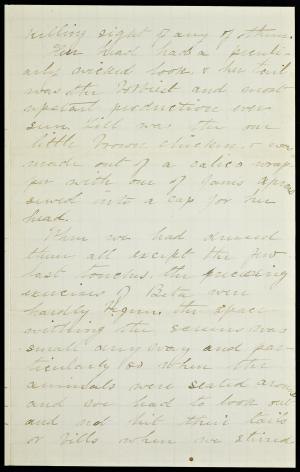 killing sight of any of them.
Her head had a peculi-
arly wicked look, & her tail
was the boldest and most
upstart production ever
seen. Bill was the one
little brown chicken, & was
made out of a calico wrap-
per with one of Jams aprons
sewed into a cap for her
head.
When we had dressed
them all except the few
last touches, the preceding
exercises of Beta were
hardly begun. The space
within the screens was
small anyway and par-
ticularly so when the
animals were seated around
and we had to look out
and not hit their tails
or bills when we stirred